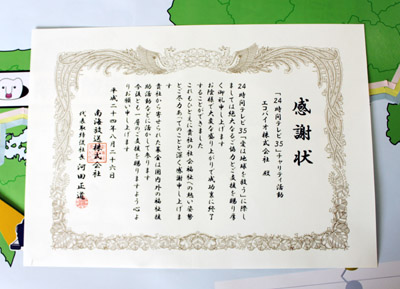 感謝状
「24時間テレビ35」チャリティ活動
エコバイオ株式会社 殿
24時間テレビ35「愛は地球を救う」に際し
ましては絶大なるご協力とご支援を賜り厚
く御礼申し上げます
お陰様で大変な盛り上がりで成功裏に終了
することができました
これもひとえに貴社の社会福祉への熱い姿勢
とご尽力あってのことと深く感謝申し上げま
す
貴社から寄せられた募金は国内外の福祉援
助活動などに活かして参ります
今後とも一層のご支援を賜りますよう心よ
りお願い申し上げます
平成二十四年八月二十六日
南海放送株式会社
代表取締役社長 河田正道